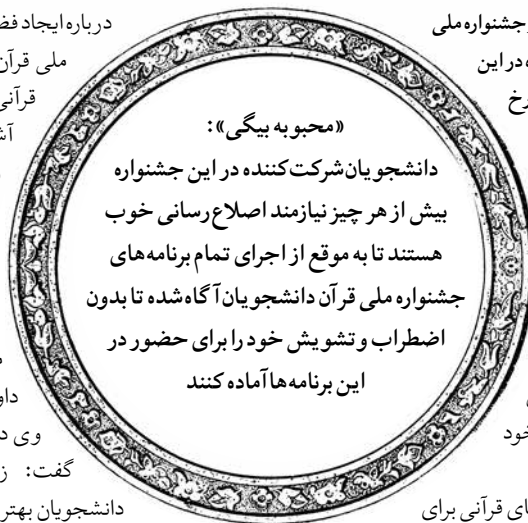 جشنواره ملی
در این
رخ
خود
ای قرآنی برای
«محبوبه بیگی»:
دانشجویان شرکت‌کننده در این جشنواره
بیش از هر چیز نیازمند اصلاع‌رسانی خوب
هستند تا به موقع از اجرای تمام برنامه‌های
جشنواره ملی قرآن دانشجویان آگاه شده تا بدون
اضطراب و تشویش خود را برای حضور در
این برنامه‌ها آماده کنند
درباره ایجاد فض
ملی قرآن
قرآنی
آش
داو
وی د
گفت: ز
دانشجویان بهتر